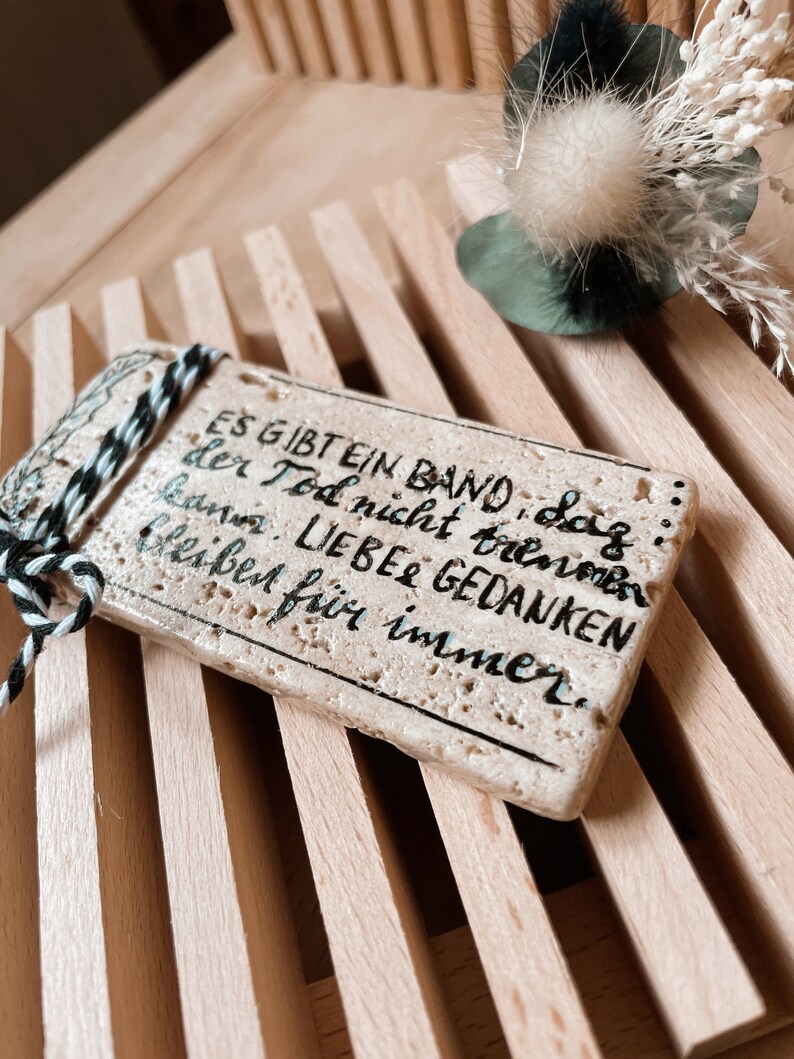 ES GIBT EIN BAND, das
der Tod nicht trennen
kann. LIEBE & GEDANKEN
bleiben für immer.